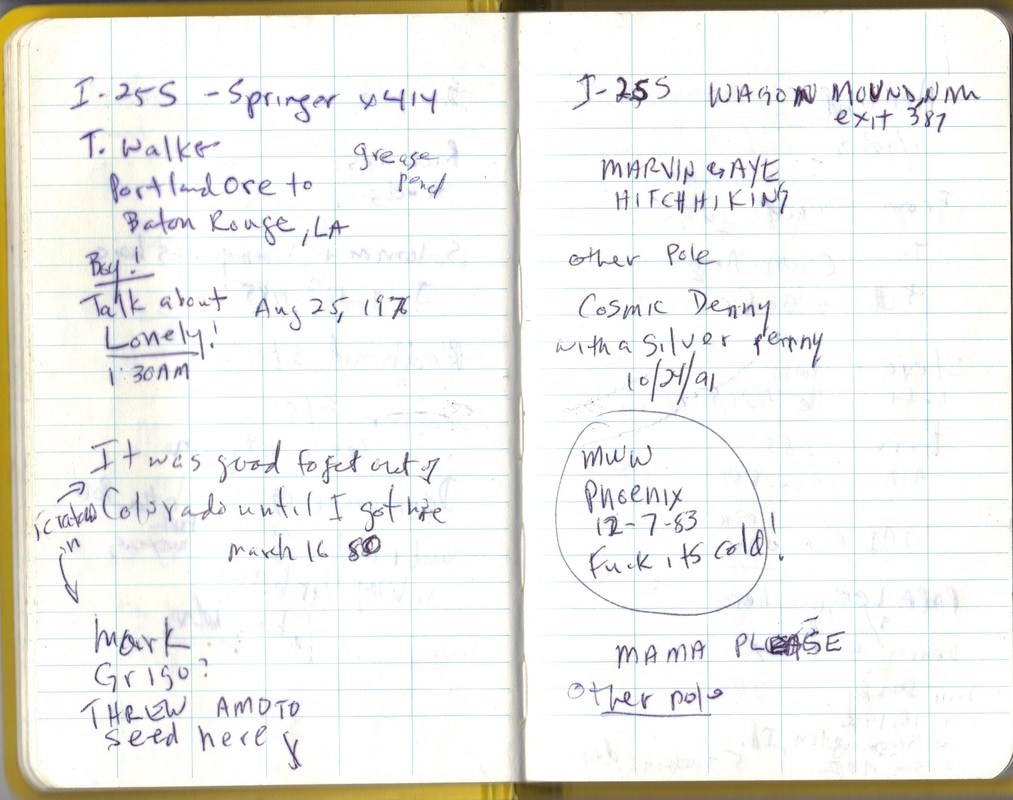 I-25S - Springer x414
T. Walker
grease
pencil
Portland Ore to
Baton Rouge, LA
Boy!
Talk about
Aug 25, 1976
Lonely!
1:30AM
It was good to get out of
Colorado until I got here
scratched
in
march 16 80
Mark
Grigo?
THREW AMOTO
seed here
I-25S WAGON MOUND, NM
exit 387
MARVIN GAYE
HITCHHIKING
other Pole
Cosmic Denny
with a Silver Penny
10/24/91
MWW
PHOENIX
12-7-83
Fuck its cold!
MAMA PLEASE
Other pole